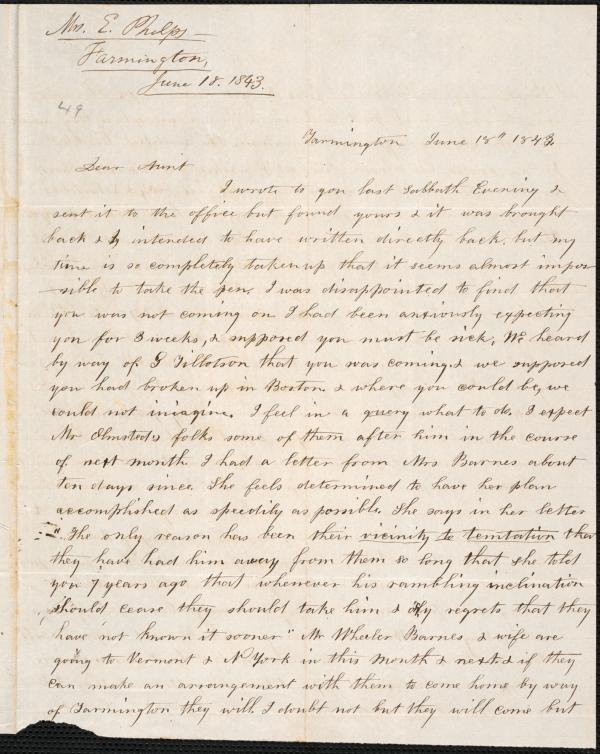 Mrs. E. Phelps —
Farmington,
June 18. 1843.
49
Farmington June 18th 1843
Dear Aunt
I wrote to you last Sabbath Evening &
sent it to the office but found yours & it was brought
back & I intended to have written directly back, but my
time is so completely taken up that it seems almost impos-
-sible to take the pen. I was disappointed to find that
you was not coming on I had been anxiously expecting
you for 3 weeks, & supposed you must be sick, We heard
by way of G Tillotson that you was coming & we supposed
you had broken up in Boston & where you could be, we
could not imagine. I feel in a query what to do. I expect
Mr Olmsteds folks some of them after him in the course
of next month I had a letter from Mrs Barnes about
ten days since. She feels determined to have her plan
accomplished as speedily as possible. She says in her letter
"The only reason has been their vicinity to temtation that
they have had him away from them so long that she told
you 7 years ago that whenever his rambling inclination
should cease they should take him & regrets that they
have not known it sooner." Mr Wheeler Barnes & wife are
going to Vermont & N York in this month & next & if they
can make an arrangement with them to come home by way
of Farmington they will. I doubt not but they will come but